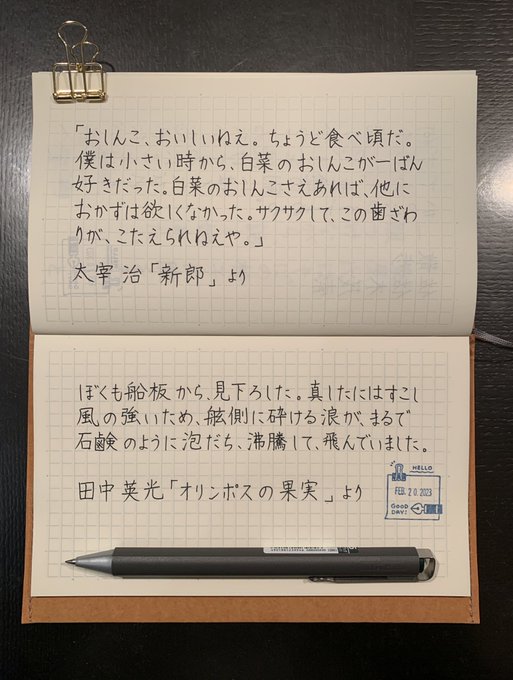 「おしんこ、おいしいねえ。ちょうど食べ頃だ。
僕は小さい時から、白菜のおしんこが一ばん
好きだった。白菜のおしんこさえあれば、他に
おかずは欲しくなかった。サクサクして、この歯ざわ
りが、こたえられねえや。」
太宰 治「新郎」より
ぼくも船板から、見下ろした。真したにはすこし
風の強いため、舷側に砕ける浪が、まるで
石鹸のように泡だち、沸騰して、飛んでいました。
田中英光「オリンポスの果実」より
HELLO
FEB. 20. 2023
GOOD
DAY!